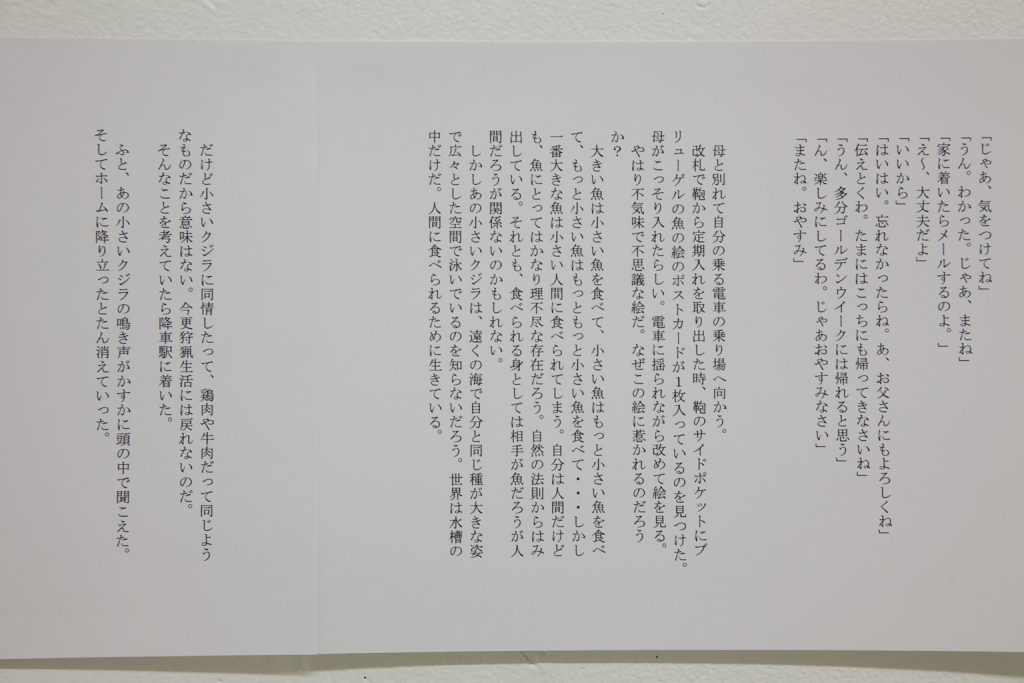 「じゃあ、気をつけてね」
「うん。わかった。じゃあ、またね」
「家に着いたらメールするのよ。」
「え～、大丈夫だよ」
「いいから」
「はいはい。忘れなかったらね。あ、お父さんにもよろしくね」
「伝えとくわ。たまにはこっちにも帰ってきなさいね」
「うん、多分ゴールデンウイークには帰れると思う」
「ん、楽しみにしてるわ。じゃあおやすみなさい」
「またね。おやすみ」
母と別れて自分の乗る電車の乗り場へ向かう。
改札で鞄から定期入れを取り出した時、鞄のサイドポケットにブ
リューゲルの魚の絵のポストカードが1枚入っているのを見つけた。
母がこっそり入れたらしい。電車に揺られながら改めて絵を見る。
やはり不気味で不思議な絵だ。なぜこの絵に惹かれるのだろう
か?
大きい魚は小さい魚を食べて、小さい魚はもっと小さい魚を食べ
て、もっと小さい魚はもっともっと小さい魚を食べて・・・しかし
一番大きな魚は小さい人間に食べられてしまう。自分は人間だけど
も、魚にとってはかなり理不尽な存在だろう。自然の法則からはみ
出している。それとも、食べられる身としては相手が魚だろうが人
間だろうが関係ないのかもしれない。
しかしあの小さいクジラは、遠くの海で自分と同じ種が大きな姿
で広々とした空間で泳いでいるのを知らないだろう。世界は水槽の
中だけだ。人間に食べられるために生きている。
だけど小さいクジラに同情したって、鶏肉や牛肉だって同じよう
なものだから意味はない。今更狩猟生活には戻れないのだ。
そんなことを考えていたら降車駅に着いた。
ふと、あの小さいクジラの鳴き声がかすかに頭の中で聞こえた。
そしてホームに降り立ったとたん消えていった。